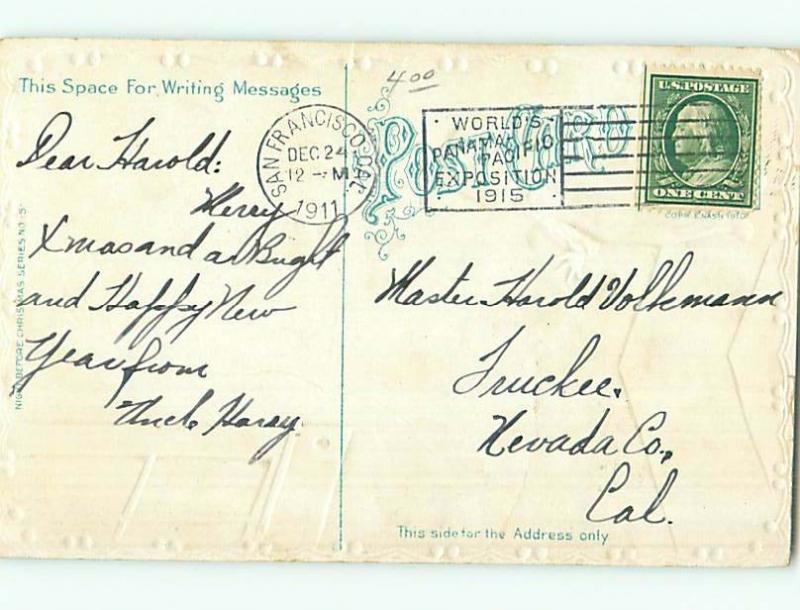 This Space For Writing Messages
4.00
Post Card
SAN FRANCISCO, CAL.
DEC 24
12 - M
1911
WORLD'S
PANAMA
PACIFIC
EXPOSITION
1915
U.S. POSTAGE
ONE CENT
Dear Harold:
Merry
Xmas and a Bright
and Happy New
Year from
Uncle Harry.
Master Harold Volkmann
Truckee.
Nevada Co.,
Cal.
NIGHT BEFORE CHRISTMAS SERIES NO. 5
This side for the Address only